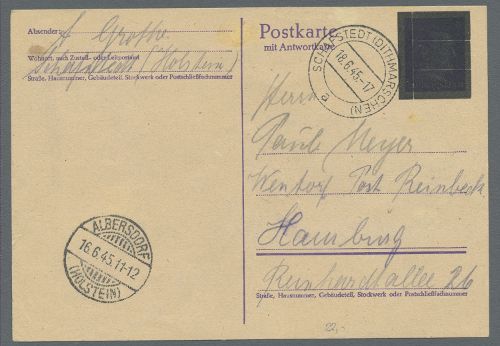 Absender: A Grothe
Wohnort, auch Zustell- oder Leitpostamt
Schafstedt (Holstein)
Straße, Hausnummer, Gebäudeteil, Stockwerk oder Postschließfachnummer
Postkarte
mit Antwortkarte
SCHAFSTEDT (DITHMARSCHEN)
18.6.45.-17
a
Herrn
Paul Meyer
Wentorf Post Reinbeck
Hamburg
Reinhardtallee 26
Straße, Hausnummer, Gebäudeteil, Stockwerk oder Postschließfachnummer
ALBERSDORF
16.6.45.11-12
(HOLSTEIN)
22,-